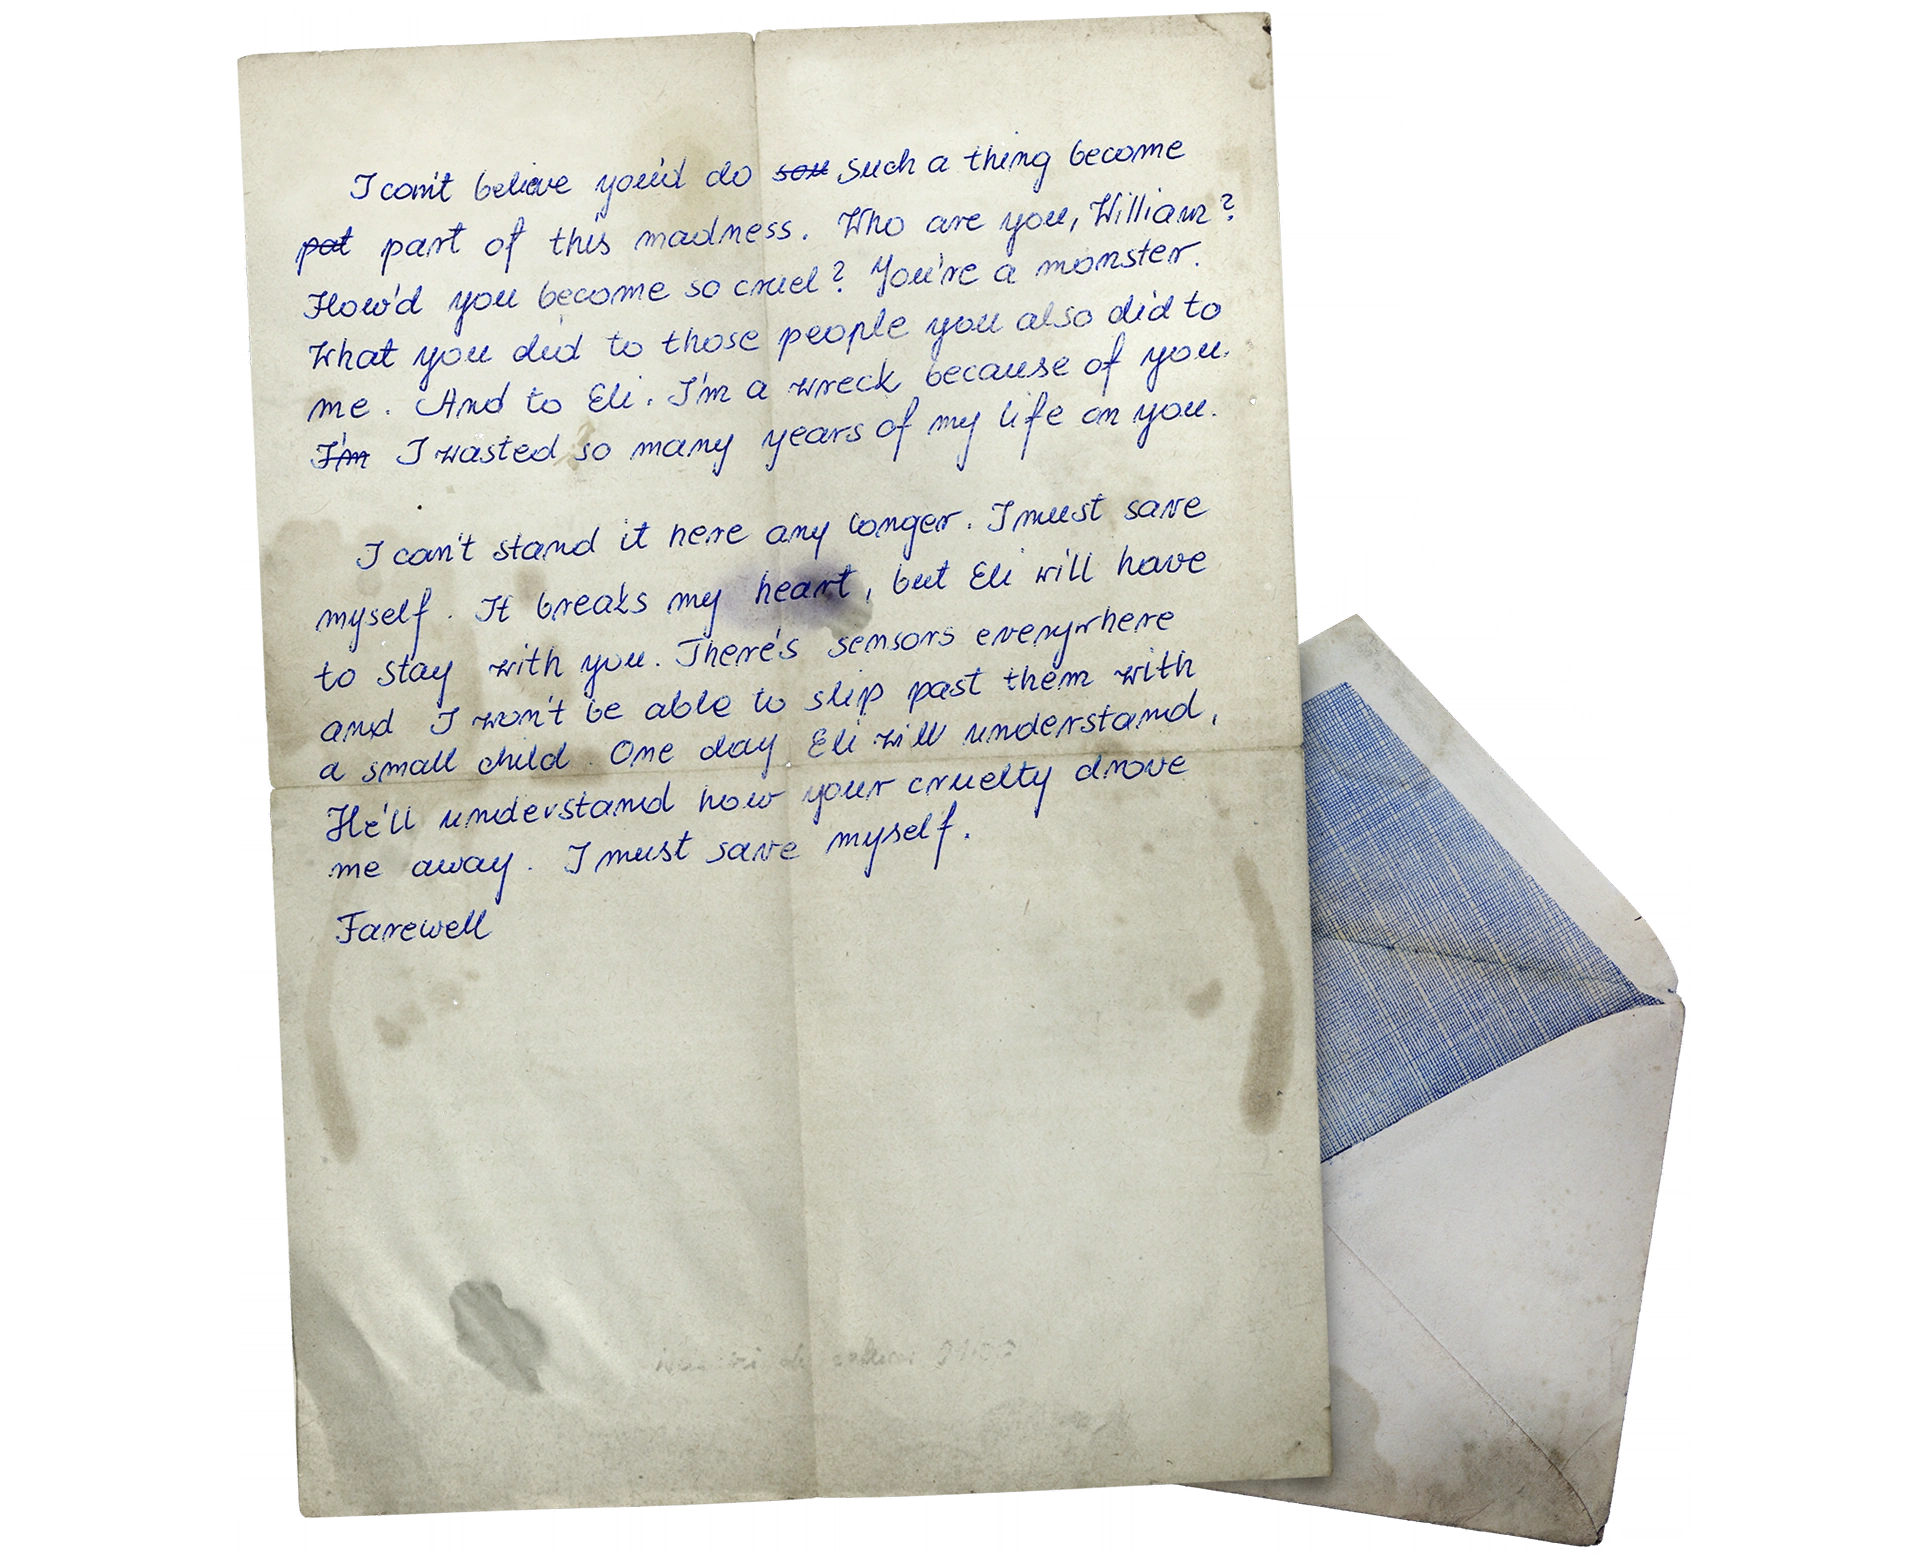 I can't believe you'd do sou such a thing become
pat part of this madness. Who are you, William?
How'd you become so cruel? You're a monster.
What you did to those people you also did to
me. And to Eli. I'm a wreck because of you.
I'm I wasted so many years of my life on you.
I can't stand it here any longer. I must save
myself. It breaks my heart, but Eli will have
to stay with you. There's sensors everywhere
and I won't be able to slip past them with
a small child. One day Eli will understand,
He'll understand how your cruelty drove
me away. I must save myself.
Farewell